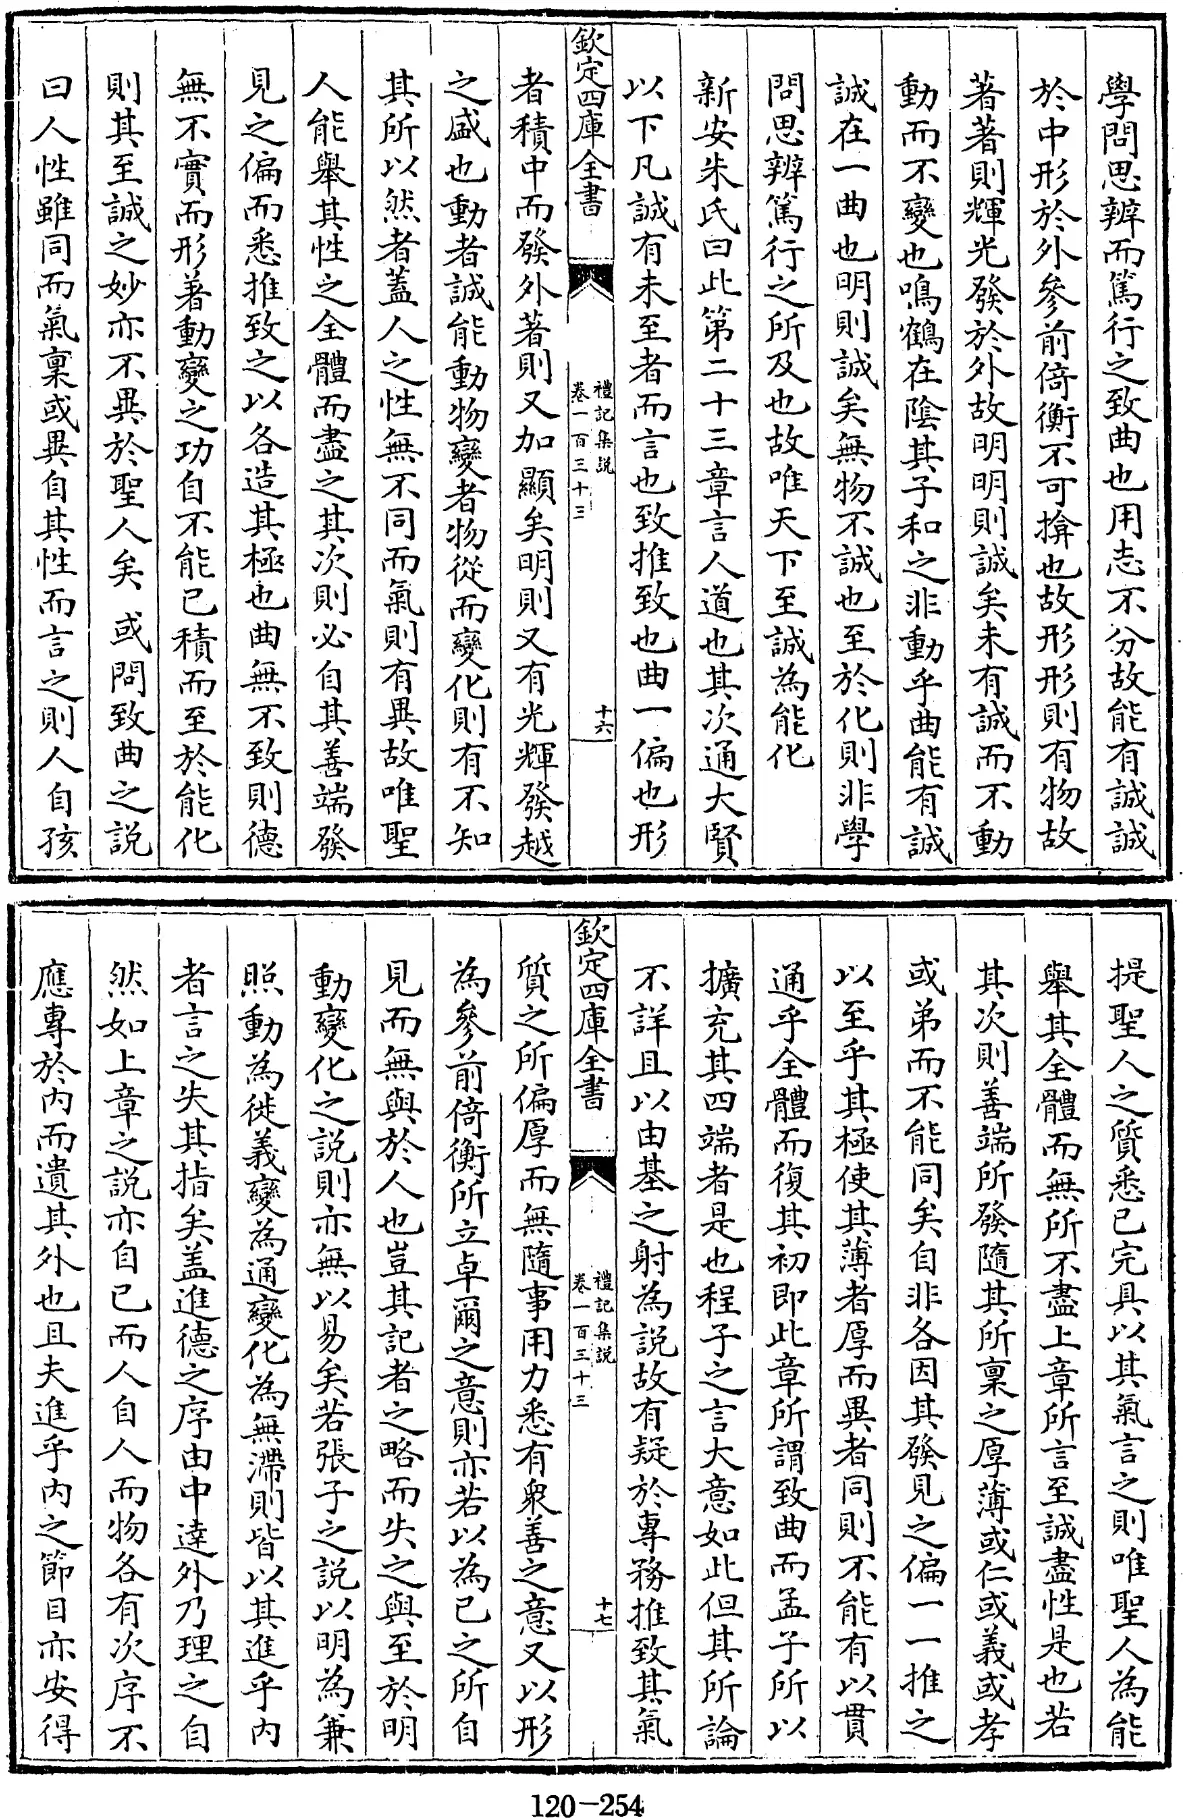 學問思辨而篤行之致曲也用志不分故能有誠誠
於中形於外參前倚衡不可揜也故形形則有物故
著著則輝光發於外故明明則誠矣未有誠而不動
動而不變也鳴鶴在陰其子和之非動乎曲能有誠
誠在一曲也明則誠矣無物不誠也至於化則非學
問思辨篤行之所及也故唯天下至誠為能化
新安朱氏曰此第二十三章言人道也其次通大賢
以下凡誠有未至者而言也致推致也曲一偏也形
欽定四庫全書
禮記集説
卷一百三十三
十六
者積中而發外著則又加顯矣明則又有光輝發越
之盛也動者誠能動物變者物從而變化則有不知
其所以然者蓋人之性無不同而氣則有異故唯聖
人能舉其性之全體而盡之其次則必自其善端發
見之偏而悉推致之以各造其極也曲無不致則德
無不實而形著動變之功自不能已積而至於能化
則其至誠之妙亦不異於聖人矣 或問致曲之説
曰人性雖同而氣稟或異自其性而言之則人自孩
提聖人之質悉已完具以其氣言之則唯聖人為能
舉其全體而無所不盡上章所言至誠盡性是也若
其次則善端所發隨其所稟之厚薄或仁或義或孝
或弟而不能同矣自非各因其發見之偏一一推之
以至乎其極使其薄者厚而異者同則不能有以貫
通乎全體而復其初即此章所謂致曲而孟子所以
擴充其四端者是也程子之言大意如此但其所論
不詳且以由基之射為説故有疑於專務推致其氣
欽定四庫全書
禮記集説
卷一百三十三
十七
質之所偏厚而無隨事用力悉有衆善之意又以形
為參前倚衡所立卓爾之意則亦若以為已之所自
見而無與於人也豈其記者之略而失之與至於明
動變化之説則亦無以易矣若張子之説以明為兼
照動為徙義變為通變化為無滯則皆以其進乎内
者言之失其指矣盖進德之序由中達外乃理之自
然如上章之説亦自已而人自人而物各有次序不
應專於内而遺其外也且夫進乎内之節目亦安得
120-254